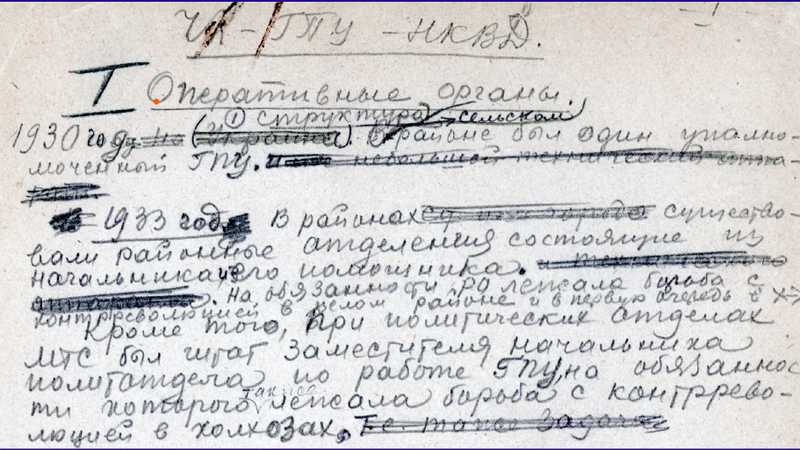 ЧК - ГПУ - НКВД.
I Оперативные органы.
(1) структура) сельском
1930 году на (Украина). В районе был один уполно-
моченный ГПУ. и небольшой технический аппа-
рат.
В 1933 году В районах существо-
вали районные отделения состоящие из
начальника и его помощника. и технического
аппарата. На обязанности РО лежала борьба с
контрреволюцией в целом районе и в первую очередь
Кроме того, при политических отделах
МТС был штат Заместителя начальника
политотдела по работе ГПУ, на обязаннос
ти которого также лежала борьба с контррево-
люцией в колхозах, Т.е. таже задача